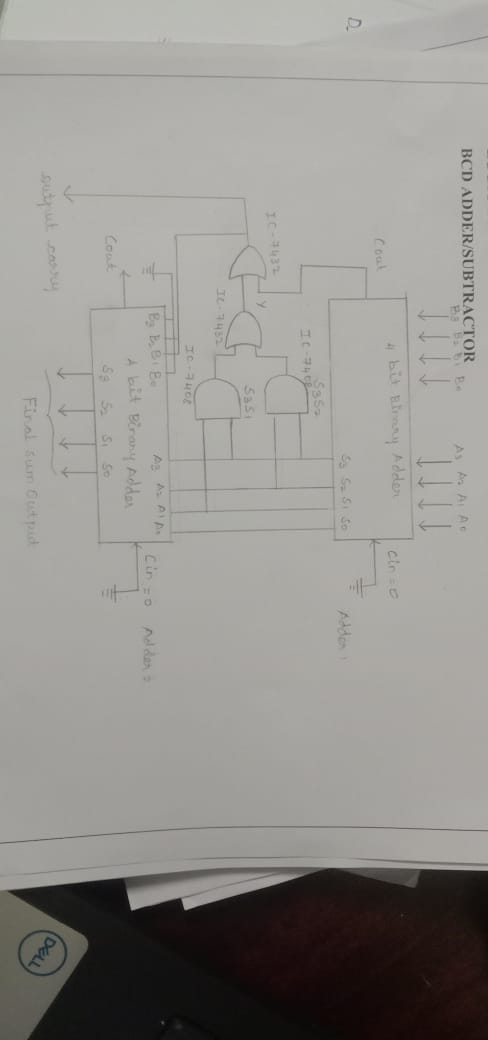 BCD ADDER/SUBTRACTOR
B3 B2 B1 B0
A3 A2 A1 A0
4 bit Binary Adder
Cin = 0
Cout
S3 S2 S1 S0
Adder 1
S3S2
IC-7408
IC-7432
Y
S3S1
IC-7432
IC-7408
B3 B2 B1 B0
A3 A2 A1 A0
Cin = 0 Adder 2
4 bit Binary Adder
Cout
S3 S2 S1 S0
output carry
Final sum Output
D
DELL